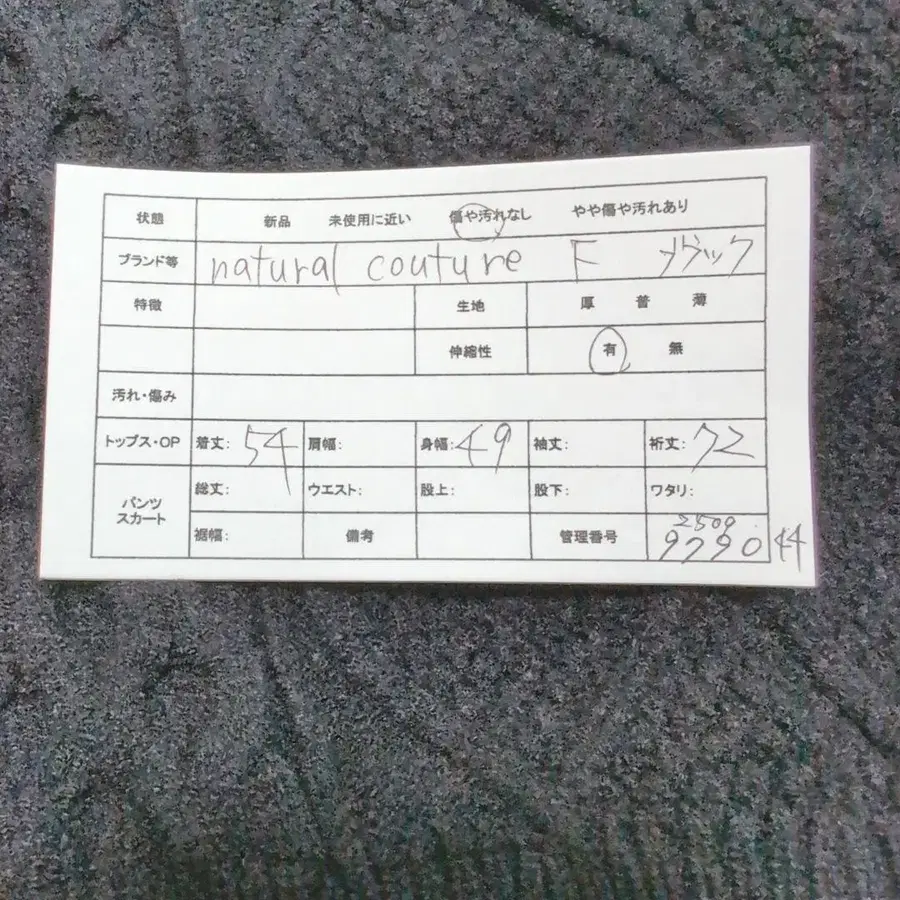 状態 新品 未使用に近い 傷や汚れなし やや傷や汚れあり
ブランド等 natural couture F
特徴 生地 厚 普 薄
伸縮性 有 無
汚れ・傷み
トップス・OP 着丈: 54 肩幅: 身幅: 49 袖丈: 裄丈: 72
パンツ スカート 総丈: ウエスト: 股上: 股下: ワタリ:
2509
裾幅: 備考 管理番号 9790 44